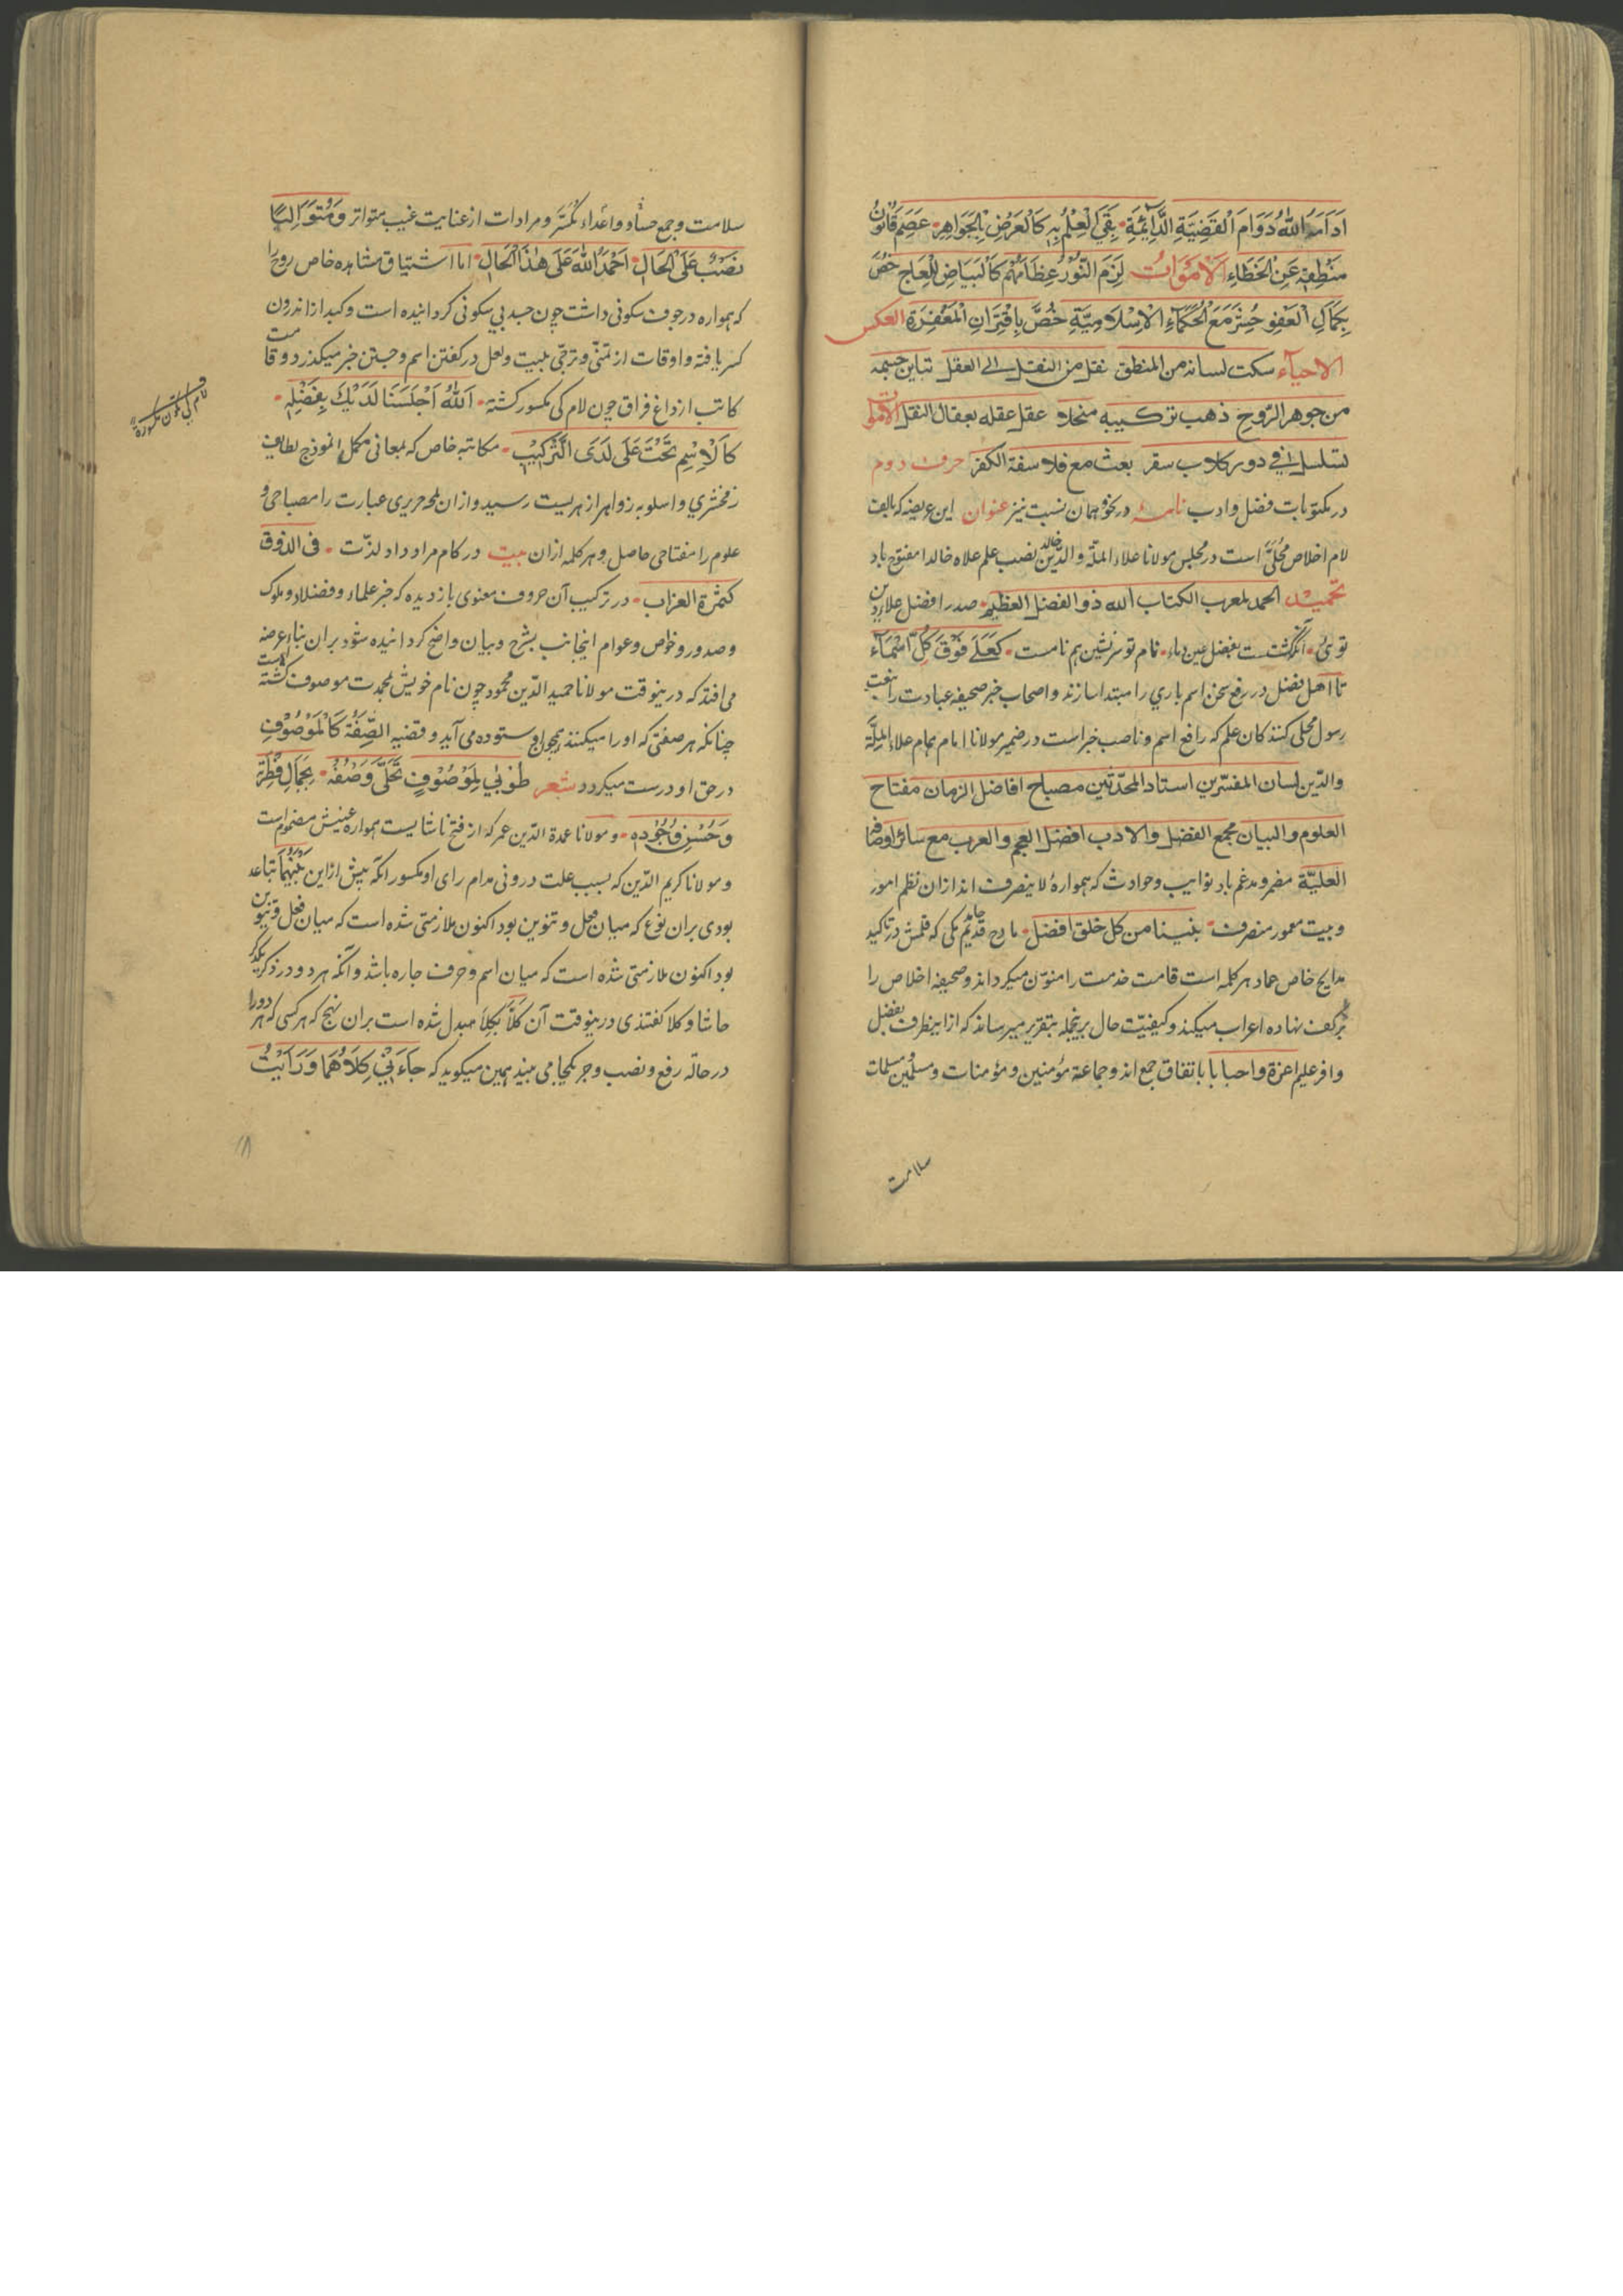 اَدَامَهُ اللّٰهُ دَوَامَ الْقَضِيَةِ الدَّائِمَةِ بَقِيَ الْعِلْمُ بِهِ كَالْعَرْضِ بِالْجَوَاهِرِ عَصَمَ قَانُونُ
مَنْطِقِهِ عَنِ الْخَطَاءِ الْاَمْوَاتُ لَزِمَ النُّوْرُ عِظَامَهُمْ كَالْبَيَاضِ لِلْعَاجِ خُصَّ
بِجَمَالِ الْعَفْوِ حُشِرَ مَعَ الْحُكَمَاءِ الْاِسْلَامِيَّةِ خُصَّ بِاقْتِرَانِ الْمَغْفِرَةِ العكس
الاحياء سكت لسانه من المنطق نقل من النقل الى العقل تباين جسمه
من جوهر الروح ذهب تركيبه منحلا عقل عقله بعقال النقل الاموات
تسلسل في دور كلاب سقر بعث مع فلاسفة الكفر حرف دوم
در مكتوبات فضل وادب نامه در نحو همان نسبت نيز عنوان اين عريضه كه بالف
لام اخلاص محلّى است در مجلس مولانا علاء الملّة والدّين خالد نصب علم علاه خالدا مفتوح باد
تحميد الحمد لمعرب الكتاب الله ذو الفضل العظيم صدر افضل علاء دين
توئ انگشتت بفضل عين دعاء نام تو برترين هم نامست كَعَلَى فَوْقَ كُلِّ اَسْمَآءِ
تا اهل فضل در رفع سخن اسم باري را مبتدا سازند واصحاب خبر صحيفه عبادت را بنعت
رسول محلى كنند كان علم كه رافع اسم وناصب خبر است در ضمير مولانا امام همام علاء الملّة
والدّين لسان المفسّرين استاد المحدّثين مصباح افاضل الزمان مفتاح
العلوم والبيان مجمع الفضل والادب افضل العجم والعرب مع سائر اوصافه
العليّة مضمر ومدغم باد نوايب وحوادث كه هموارۀ لا ينصرف اند ازان نظم امور
وبيت معمور منصرف بنبينا من كل خلق افضل مادح قديم مكى كه قلمش در تاكيد
مدايح خاص عماد هر كلمه است قامت خدمت را منوّن ميكرداند وصحيفه اخلاص را
بر كف نهاده اعراب ميكند وكيفيّت حال برينجمله بتقرير ميرساند كه ازاينطرف بفضل
وافر عليم اعزة واحبا با باتفاق جمع اند وجماعة مؤمنين ومؤمنات ومسلمين ومسلمات
سلامت
سلامت وجمع حسّاد واعداء مكسّر ومرادات از عنايت غيب متواتر وَمُتَوَالِيًا
نَصْبٌ عَلَى الْحَالِ اَحْمَدُ اللّٰهَ عَلَى هٰذَا الْحَالِ اما اشتياق مشاهده خاص روح را
كه همواره در جوف سكونى داشت چون جسد بي سكونى كردانيده است وكبد از اندرون
كسر يافته واوقات از تمنّي وترجّي بليت ولعل در كفتن اسم وجستن خبر ميكذرد وقامت
كاتب از داغ فراق چون لام كى مكسور كشته اَللّٰهُ اَجْلَسَنَا لَدَيْكَ بِفَضْلِهِ
كَالْاِسْمِ تَحْتَ عَلَى لَدَى التَّرْكِيْبِ مكاتبه خاص كه لمعانى مكمل انموذج لطايف
زمخشري واسلوبه زواهر ازهريست رسيد وازان لمحه حريرى عبارت را مصباحى و
علوم را مفتاحى حاصل وهر كلمه ازان بيت در كام مراد داد لذّت فى الذوق
كثمرة العزاب در تركيب آن حروف معنوى بازديده كه خبر علماء وفضلا وملوك
وصدور وخواص وعوام اينجانب بشرح وبيان واضح كردانيده شود بران بناء عرضه
مى افتد كه درينوقت مولانا حميد الدّين محمود چون نام خويش بمحمدت موصوف كشته است
چنانكه هر صفتى كه اورا ميكنند همچو او ستوده مى آيد وقضيه الصِّفَةُ كَالْمَوْصُوْفِ
در حق او درست ميكردد شعر طُوْبٰى لِمَوْصُوْفٍ تَحَلّٰى وَصْفُهُ بِجَمَالِ فِطْرَةِ
وَحُسْنِ وُجُوْدِهِ ومولانا عمدة الدّين عمر كه از فتح ناشايست همواره عينش مضموم است
ومولانا كريم الدّين كه بسبب علت درونى مدام راى او مكسور انكه پيش ازاين بَيْنَهُمَا تباعد
بودى بران نوع كه ميان فعل وتنوين بود اكنون ملازمتى شده است كه ميان فعل وتنوين
بود اكنون ملازمتى شده است كه ميان اسم وحرف جاره باشد وآنكه هر دو در ذكر يكديگر
حاشا وكلا كفتندى درينوقت آن كَلَّا بِكِلَا مبدل شده است بران نهج كه هر كسى كه هر دورا
در حالة رفع ونصب وجر يكجا مى بيند همين ميكويد كه جَاءَنِيْ كِلَاهُمَا وَرَاَيْتُ